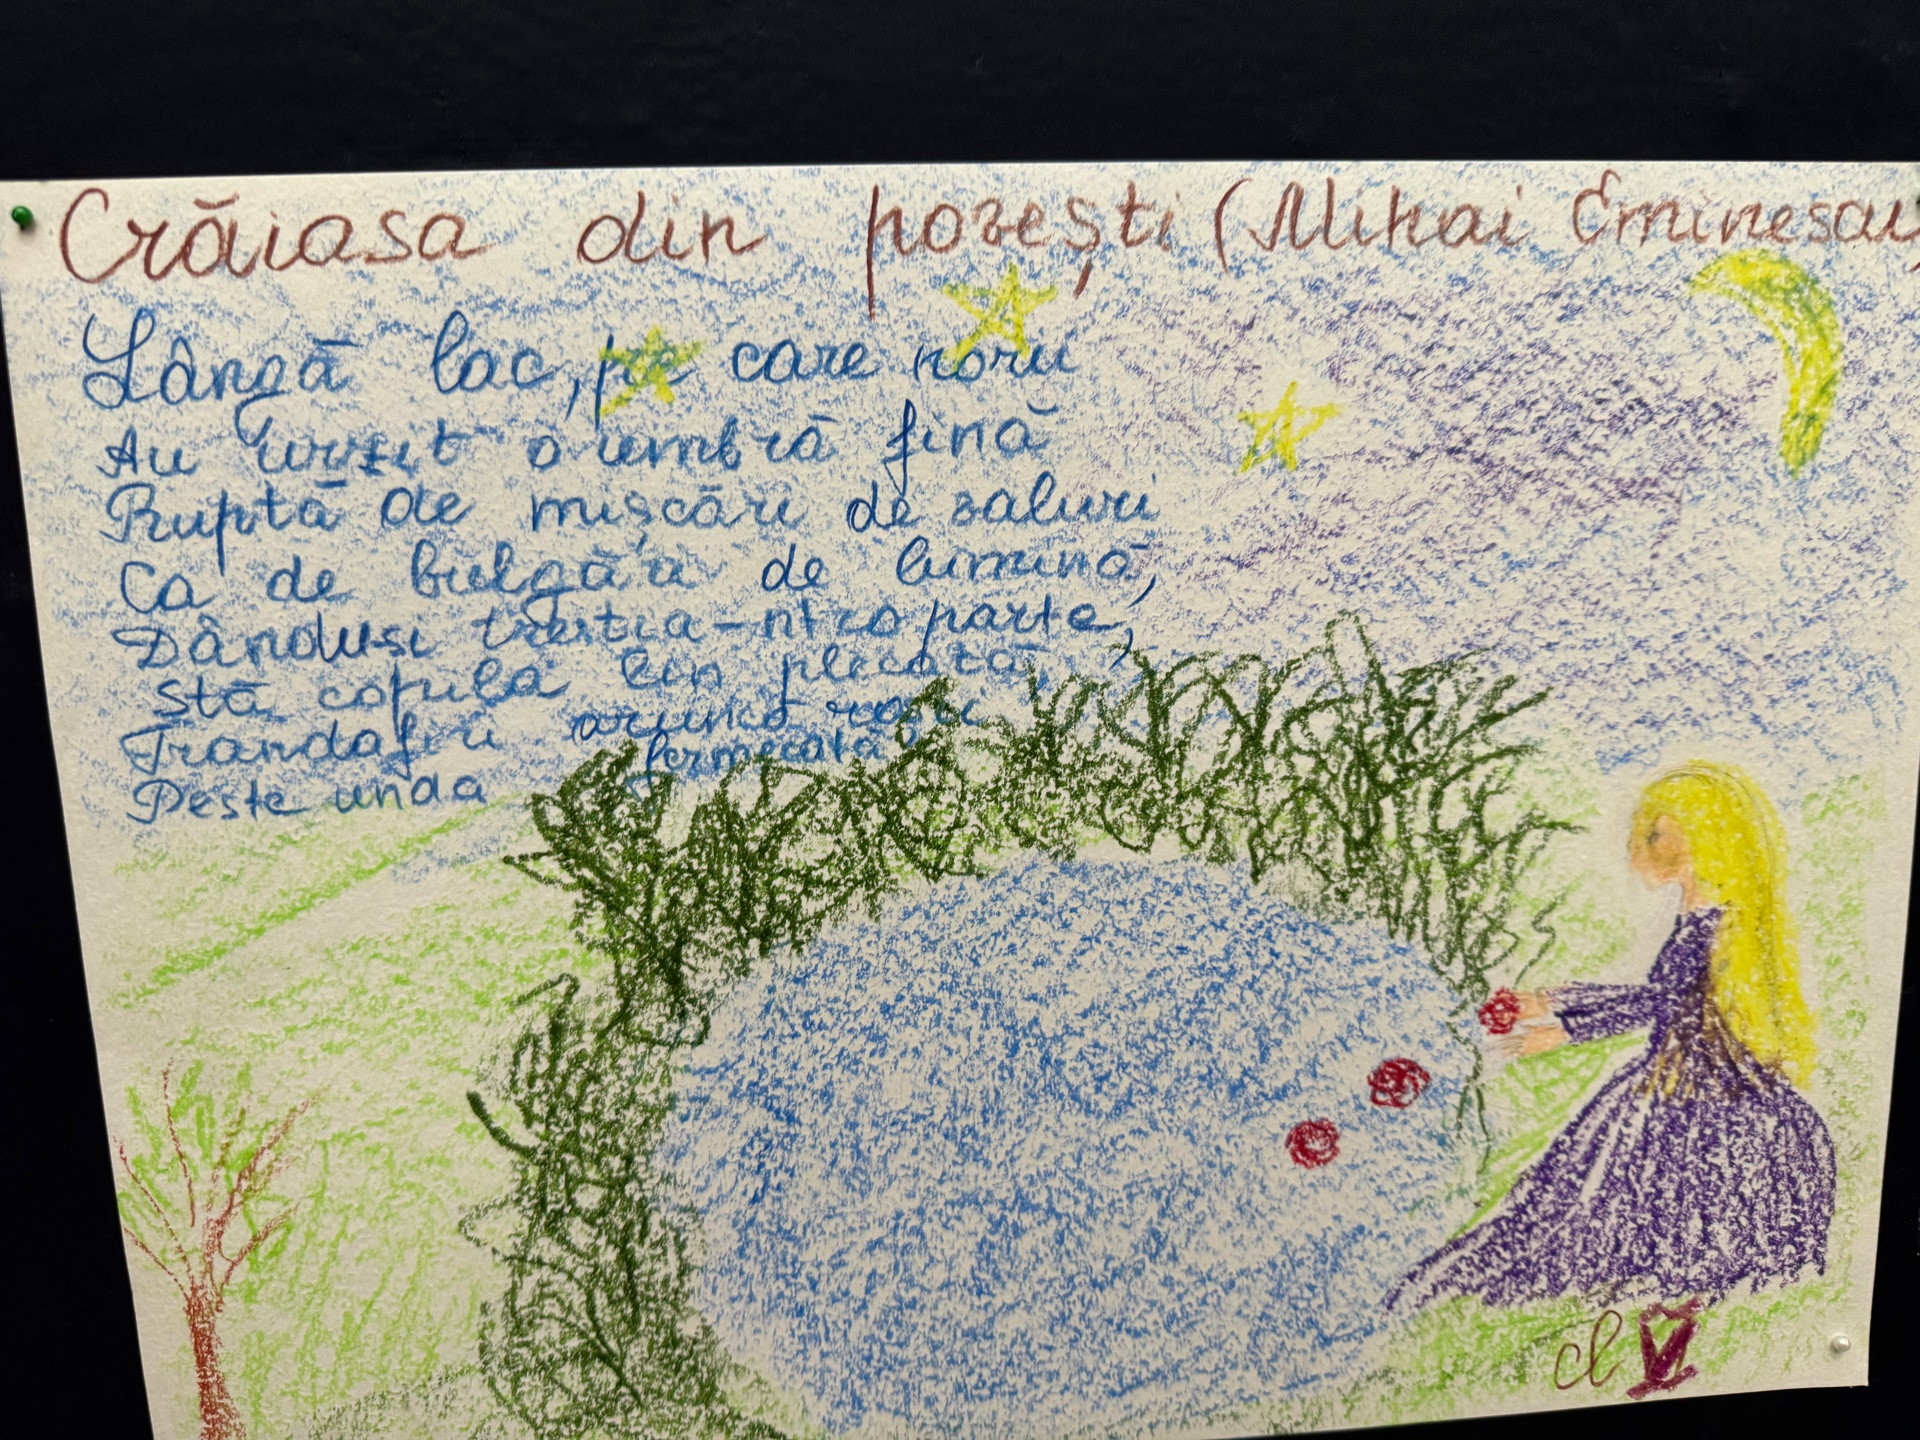 Crăiasa din povești (Mihai Eminescu)
Lângă lac, pe care norii
Au urzit o umbră fină
Ruptă de mișcări de valuri
Ca de bulgări de lumină,
Dânduși trestia-ntro parte,
Stă copila lin plecată,
Trandafiri aruncă roșii
Peste unda fermecată.
cl V